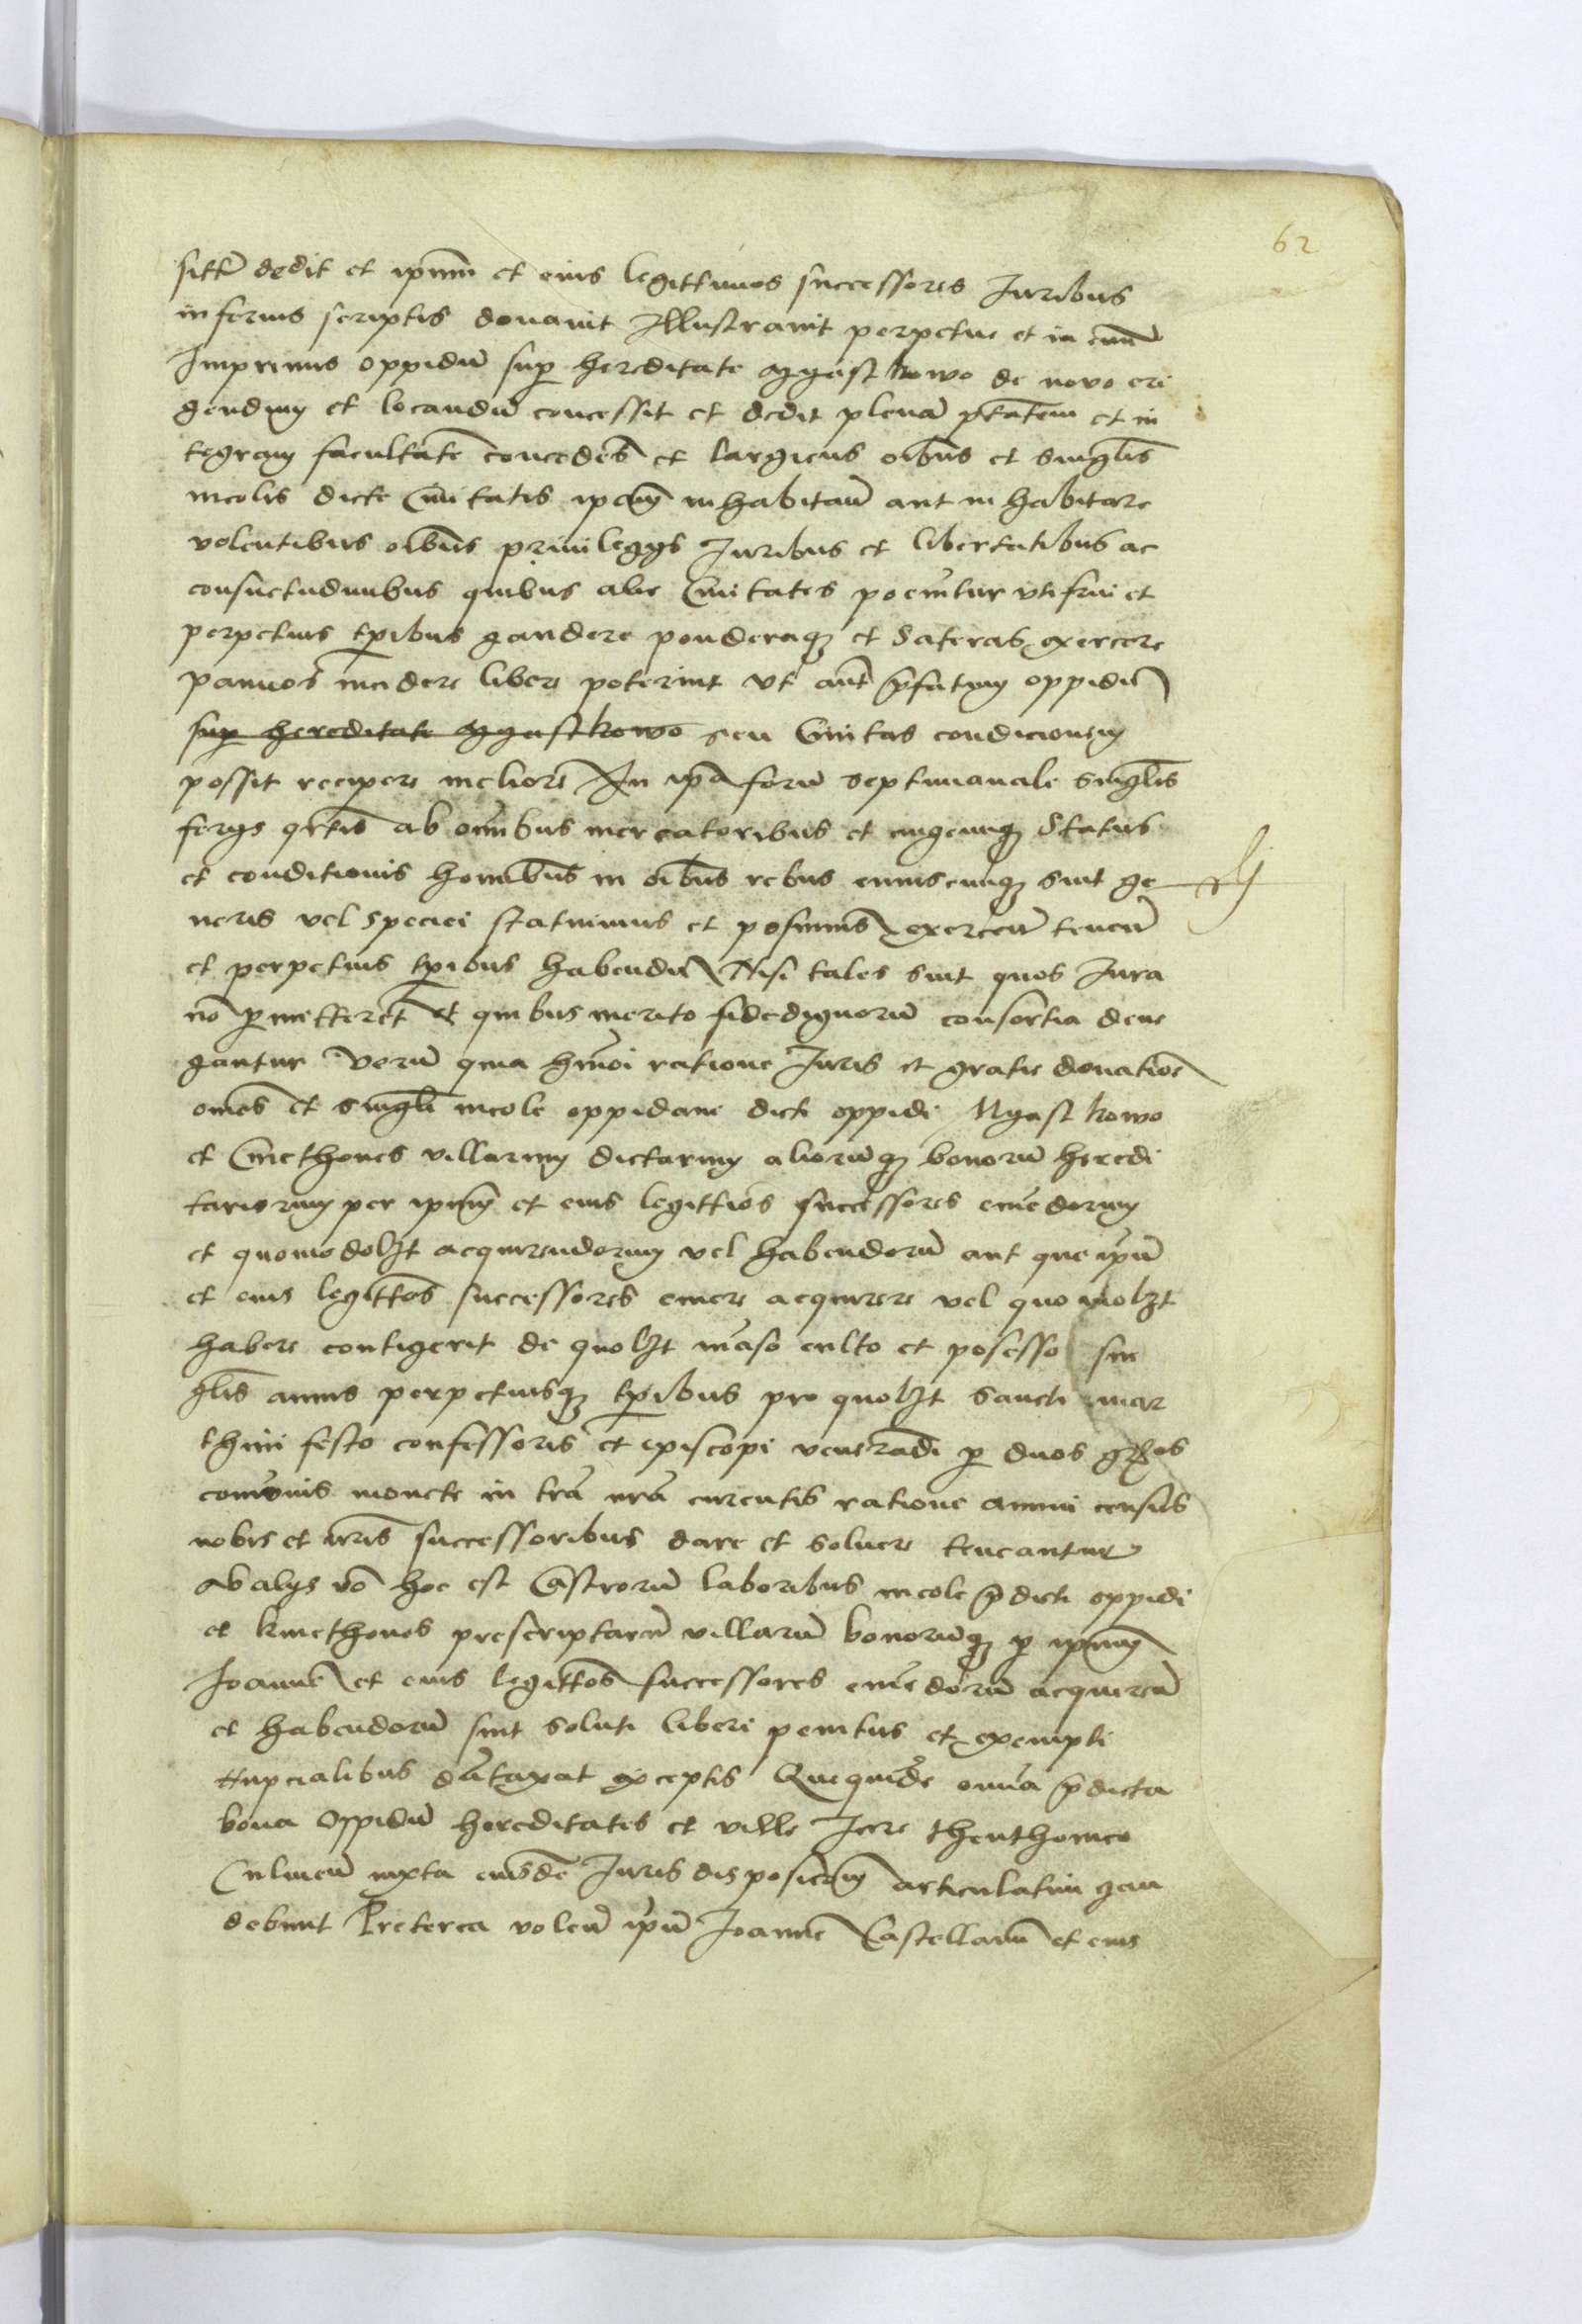 62
sittr̄ dedit et ipm̄m et eius legittimos successores Juribus
inferius scriptis donavit Illustravit perpetue et in eūm
Imprimis oppidū sup hereditate Mgastkowo de novo eri
gendum et locandū concessit et dedit plenā ptātem et in
tegram facultatē concedeñ et largiens oībus et singlis
incolis dicte Civitatis ipam̄ inhabitañ aut inhabitare
volentibus oībus privilegys Juribus et libertatibus ac
consuetudinibus quibus alie Civitates pocīuntur uti frui et
perpetuis tp̄ribus gaudere ponderaq3 et Sateras exercere
pannos incidere libere poterint ut aūt p̄fatum oppidū
sup hereditate Mgastkowo seu Civitas condicionem
possit recipere meliorē In ip̄a forū septimanale singlis
ferys qr̄tis ab om̄ibus mercatoribus et cuigcunq3 Status
et conditionis hominib̄us in oībus rebus cuiuscunq3 sint ge
neris vel speciei statuimus et posuimus exerceñ teneñ
et perpetuis tp̄ribus habendū Nisi tales sint quos Jura
nō pmitterēt et quibus merito fidedignorū consortia dene
gantur Verū quia hm̄oi ratione Juris et gratie donationē
om̄es et singli incole oppidani dicti oppidi Mgastkowo
et Cmethones villarum dictarum aliorūq3 bonorū heredi
tariorum per ipm̄m et eius legittīos successores emēdorum
et quomodolz̄t acquirendorum vel habendorū aut que ip̄ū
et eius legittōs successores emere acquirere vel quomolz̄t
habere contigerit de quolz̄t māso culto et posesso sin
glis annis perpetuisq3 tp̄ribus pro quolz̄t Sancti mar
thini festo confessoris et episcopi venerādi p duos gr̄os
com̄unis monete in trā nrā currentis ratione annui census
nobis et nr̄is successoribus dare et solvere teneantur
ab alys vō hoc est Castrorū laboribus incole p̄dicti oppidi
et kmethones prescriptarū villarū bonorūq3 p ipm̄m
Joannē et eius legittōs successores emēdorū acquireñ
et habendorū sint soluti liberi penitus et exempti
Nupcialibus dūtaxat exceptis Quequidē omīa p̄dicta
bona Oppidū hereditates et ville Jure thenthonico
Culmeñ iuxta eiusdē Juris disposicōm articulatim gau
debunt Preterea voleñ ip̄ū Joannē Castellanū et eius